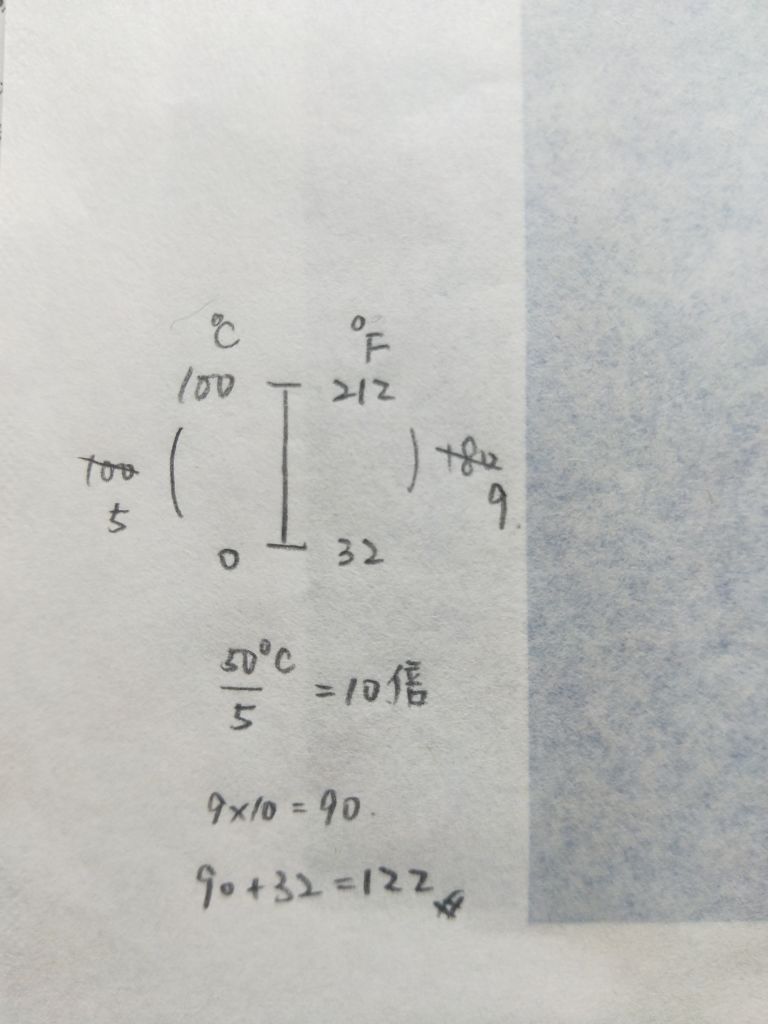 °C °F
100 212
100 180
5 9
0 32
50°C
5 =10倍
9×10=90.
90+32=122